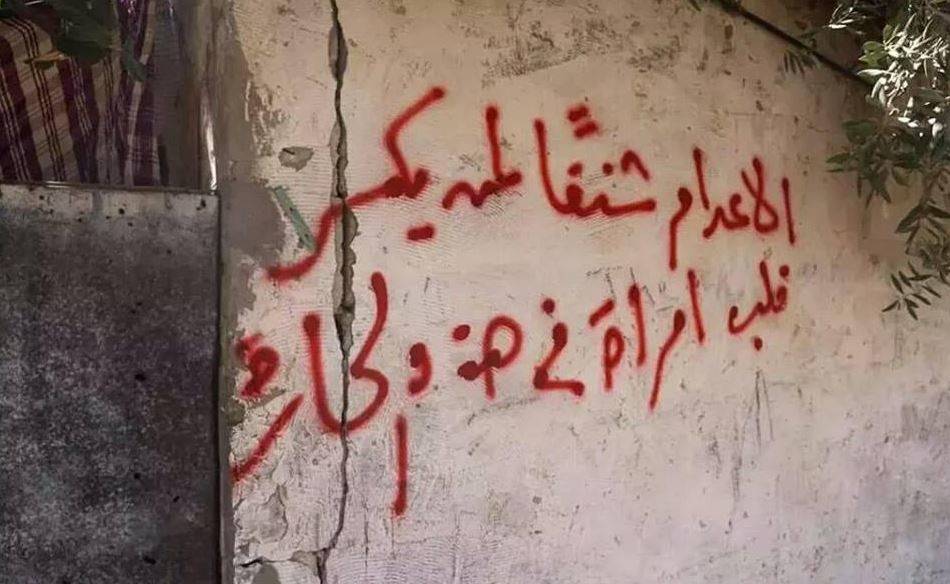 الاعدام شنقًا لمن يكسر
قلب امرأة في هذه الحارة